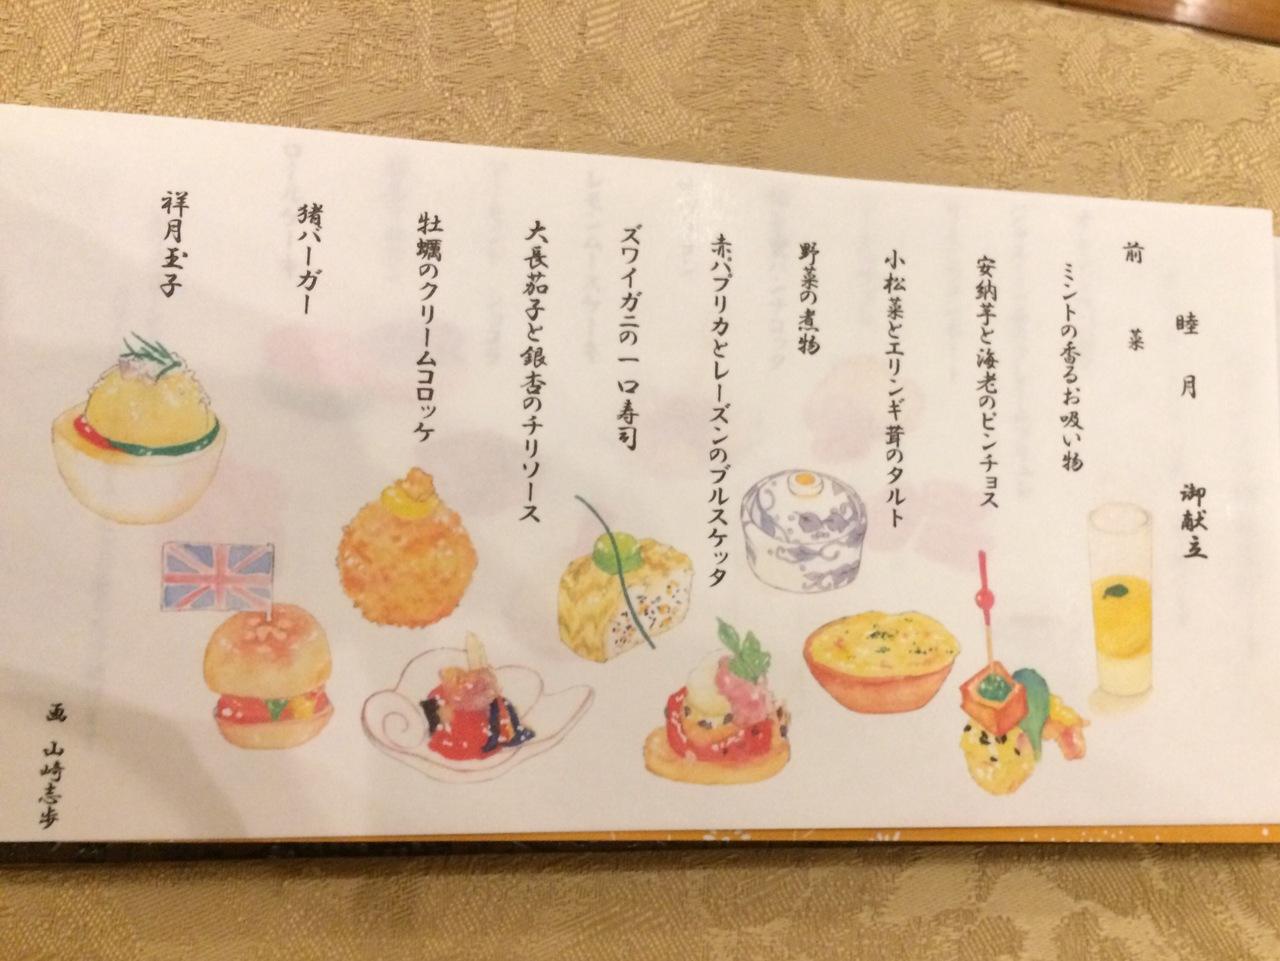 睦月 御献立
前菜
ミントの香るお吸い物
安納芋と海老のピンチョス
小松菜とエリンギ茸のタルト
野菜の煮物
赤パプリカとレーズンのブルスケッタ
ズワイガニの一口寿司
大長茄子と銀杏のチリソース
牡蠣のクリームコロッケ
猪バーガー
祥月玉子
画 山崎志歩